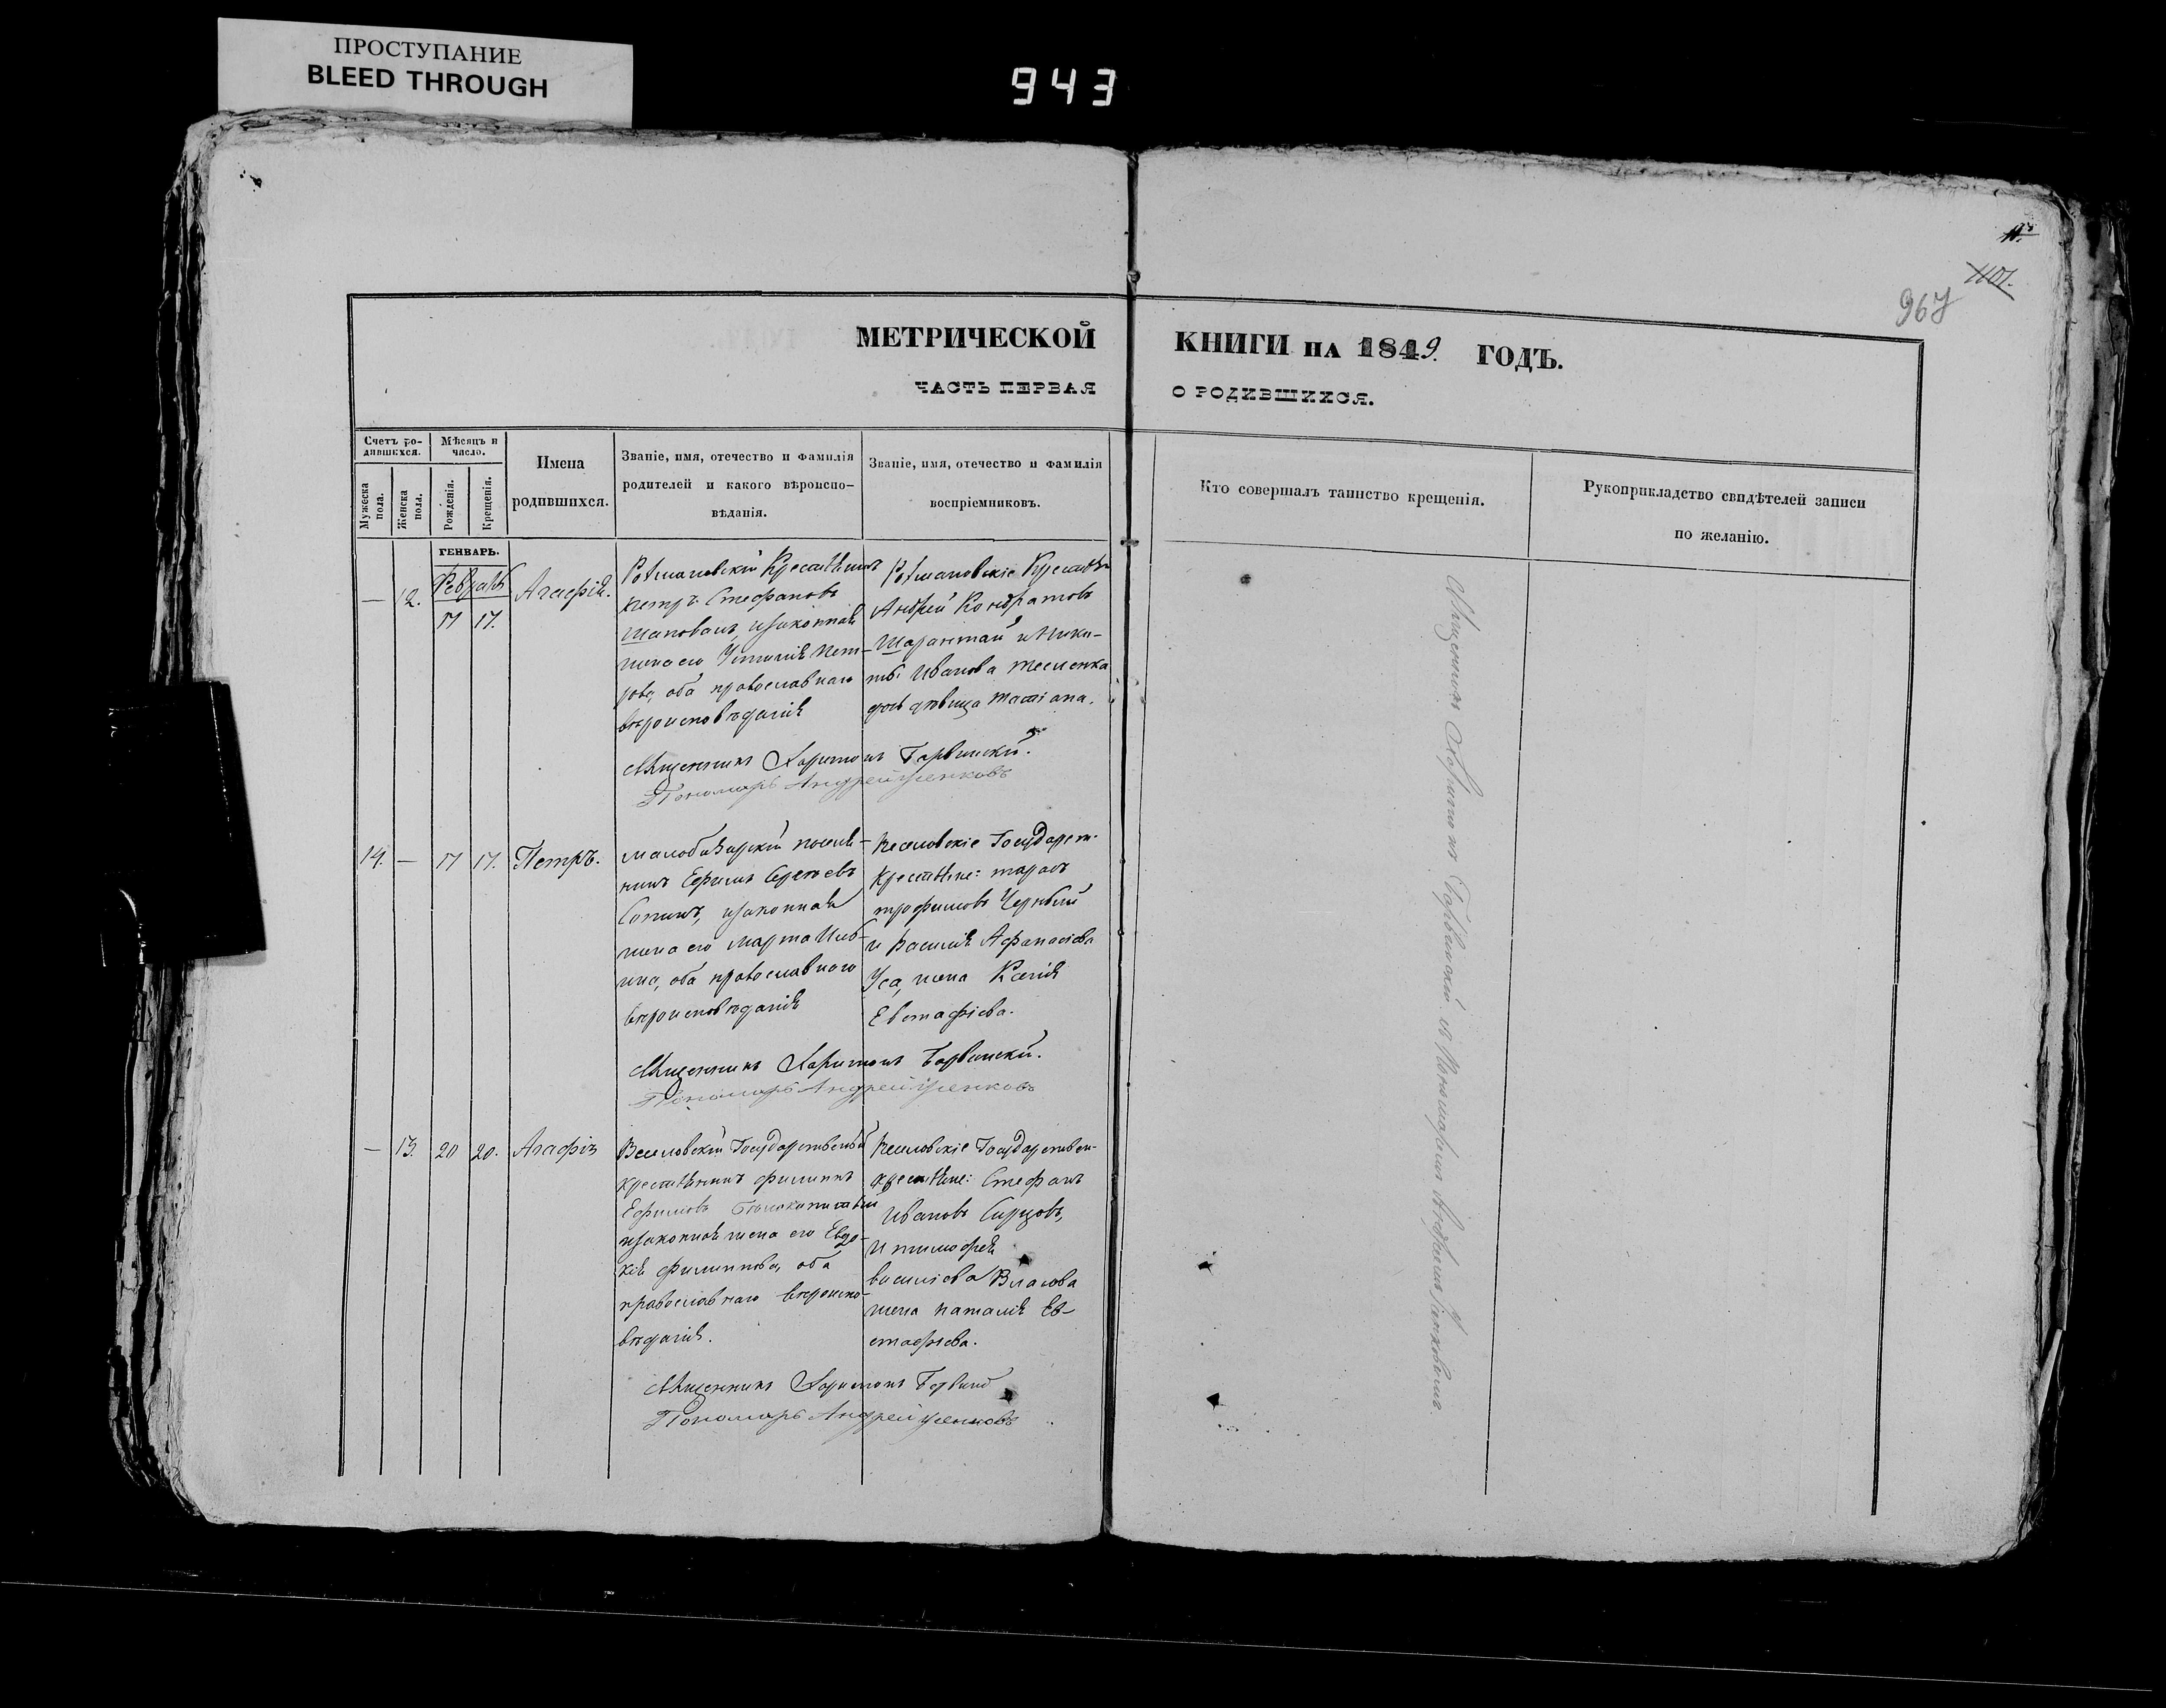 ПРОСТУПАНИЕ
BLEED THROUGH
943
1107.
967
МЕТРИЧЕСКОЙ КНИГИ НА 1849. ГОДЪ.
ЧАСТЬ ПЕРВАЯ О РОДИВШИХСЯ.
Счетъ ро-
дившихся.
Мѣсяцъ и
число.
Мужеска
пола.
Женска
пола.
Рожденія.
Крещенія.
Имена
родившихся.
Званіе, имя, отечество и фамилія
родителей и какого вѣроиспо-
вѣданія.
Званіе, имя, отечество и фамилія
воспріемниковъ.
Кто совершалъ таинство крещенія.
Рукоприкладство свидѣтелей записи
по желанію.
ГЕНВАРЬ.
Февраль
— 12. 17 17. Агафія.
Петръ Стефановъ
Шаповалъ, изаконная
жена его Пет-
рова, оба православнаго
вѣроисповѣданія
Андрей Кондратовъ
и Ники-
ты Иванова Тесленка
дочь дѣвица Татіана.
Священникъ Харитонъ Барвинскій.
Пономарь Андрей Уенковъ
14. — 17 17. Петръ.
Ефимъ Сергѣевъ
Сотинъ, изаконная
жена его Марта Иль-
ина, оба православнаго
вѣроисповѣданія
Веселовскіе Государст.
Крестьяне: Тарасъ
Трофимовъ Черный
и Василія Афанасіева
Уса, жена Ксенія
Евстафіева.
Священникъ Харитонъ Барвинскій.
Пономарь Андрей Уенковъ
— 13. 20 20. Агафія
Веселовскій Государственный
крестьянинъ Филиппъ
Ефимовъ
изаконная жена его Евдо-
кія Филиппова, оба
православнаго вѣроиспо-
вѣданія.
Веселовскіе Государствен-
крестьяне: Стефанъ
Ивановъ Сирцовъ,
и Тимофея
Василіева Власова
жена Наталія Ев-
стафіева.
Священникъ Харитонъ Барвинс
Пономарь Андрей Уенковъ
Священникъ Харитонъ Барвинскій съ Пономаремъ Андреемъ